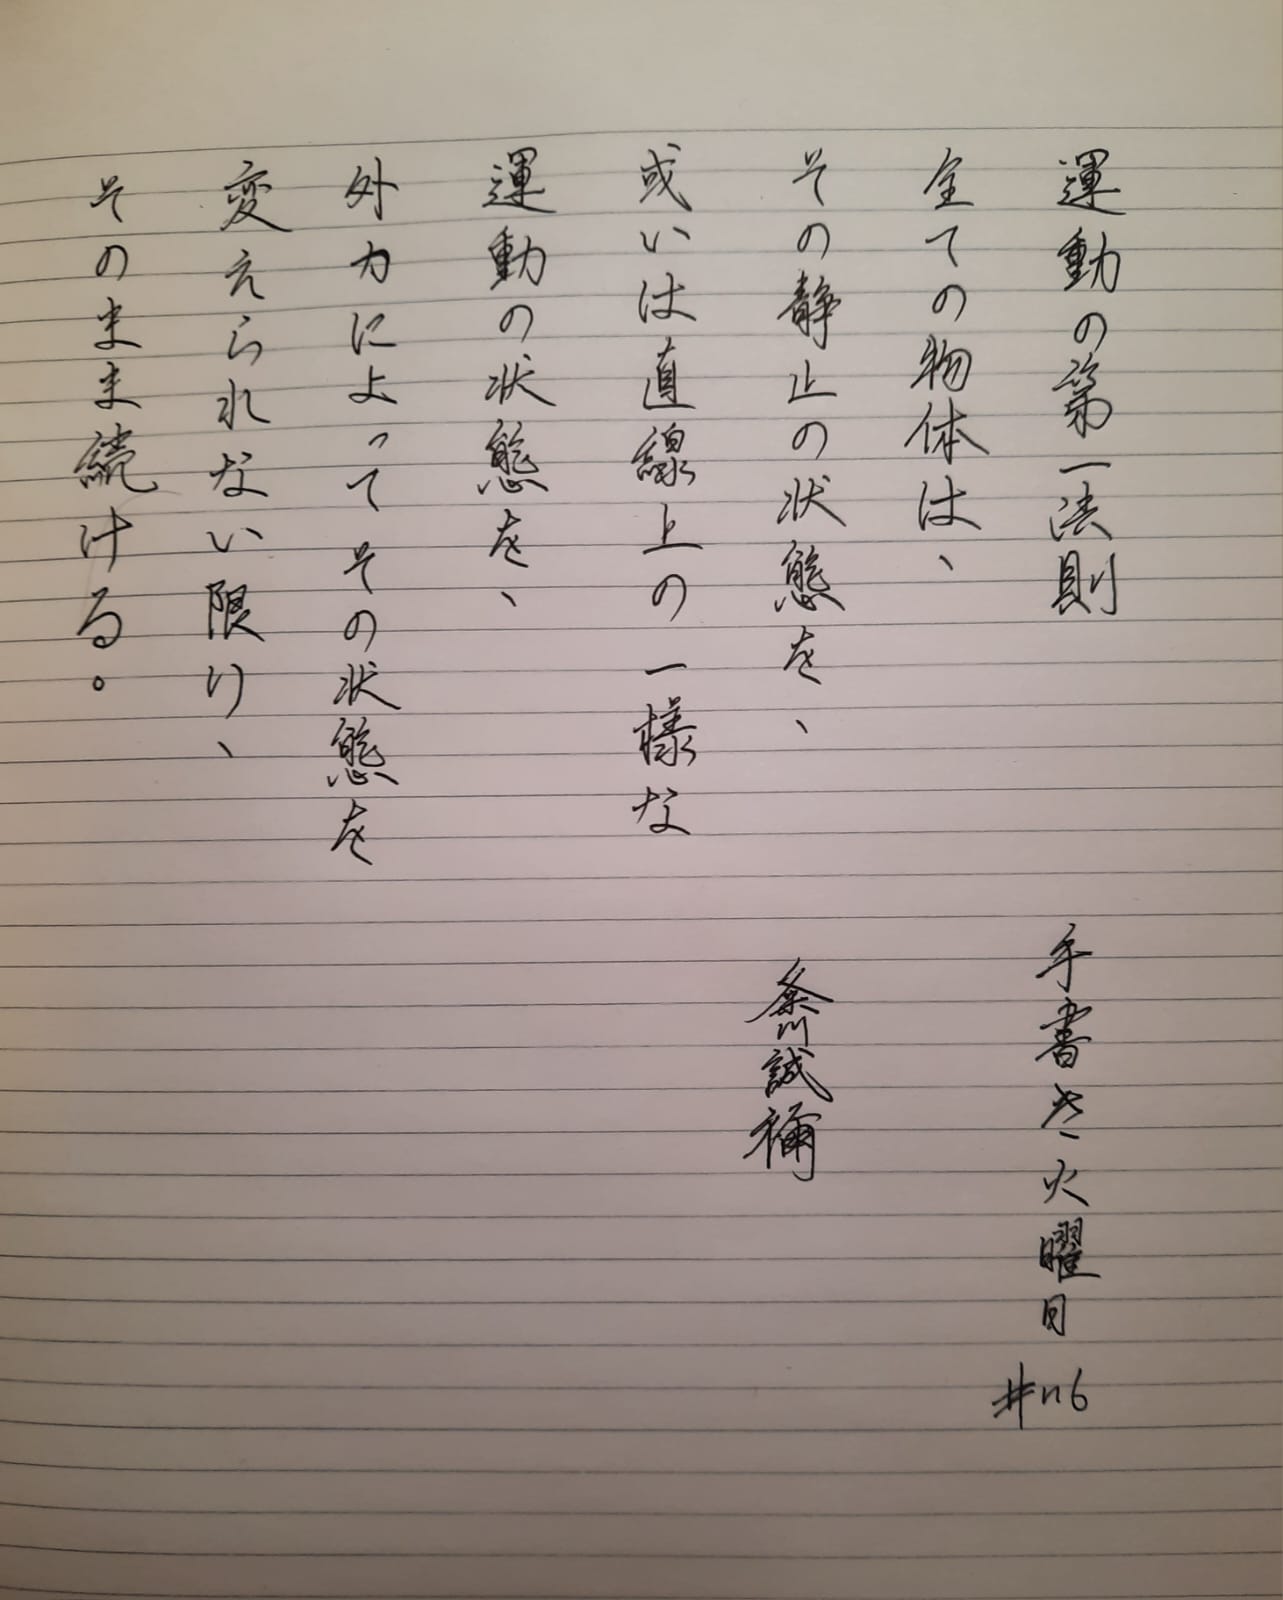 運動の第一法則
全ての物体は、
その静止の状態を、
或いは直線上の一様な
運動の状態を、
外力によってその状態を
変えられない限り、
そのまま続ける。
手書き火曜日
#116
粂川誠彌